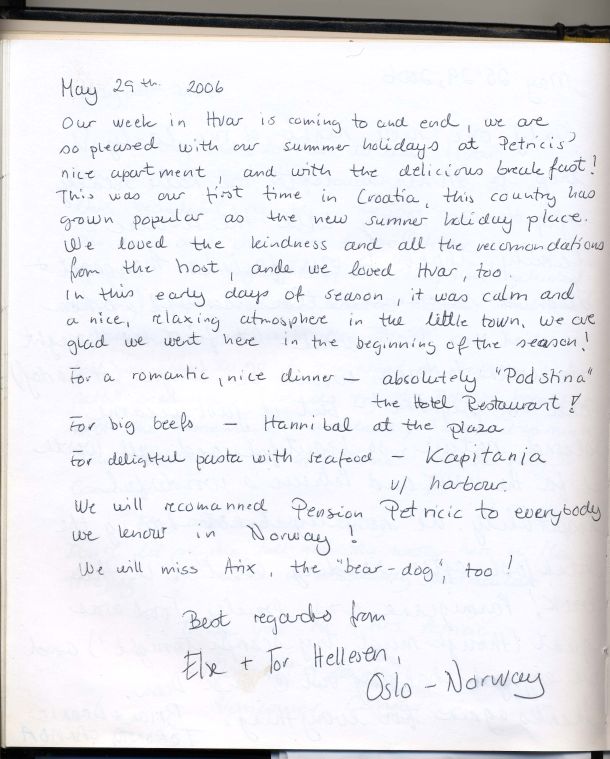 May 29th. 2006
Our week in Hvar is coming to and end, we are
so pleased with our summer holidays at Petricis'
nice apartment, and with the delicious breakfast!
This was our first time in Croatia, this country has
grown popular as the new summer holiday place.
We loved the kindness and all the recomandations
from the host, ande we loved Hvar, too.
In this early days of season, it was calm and
a nice, relaxing atmosphere in the little town. We are
glad we went here in the beginning of the season!
For a romantic, nice dinner – absolutely "Podstina"
the Hotel Restaurant!
For big beefs – Hannibal at the plaza
For delightful pasta with seafood – Kapitanja
v/ harbour.
We will recomanned Pension Petricic to everybody
we know in Norway!
We will miss Arix, the "bear-dog", too!
Best regards from
Else + Tor Hellesen,
Oslo – Norway